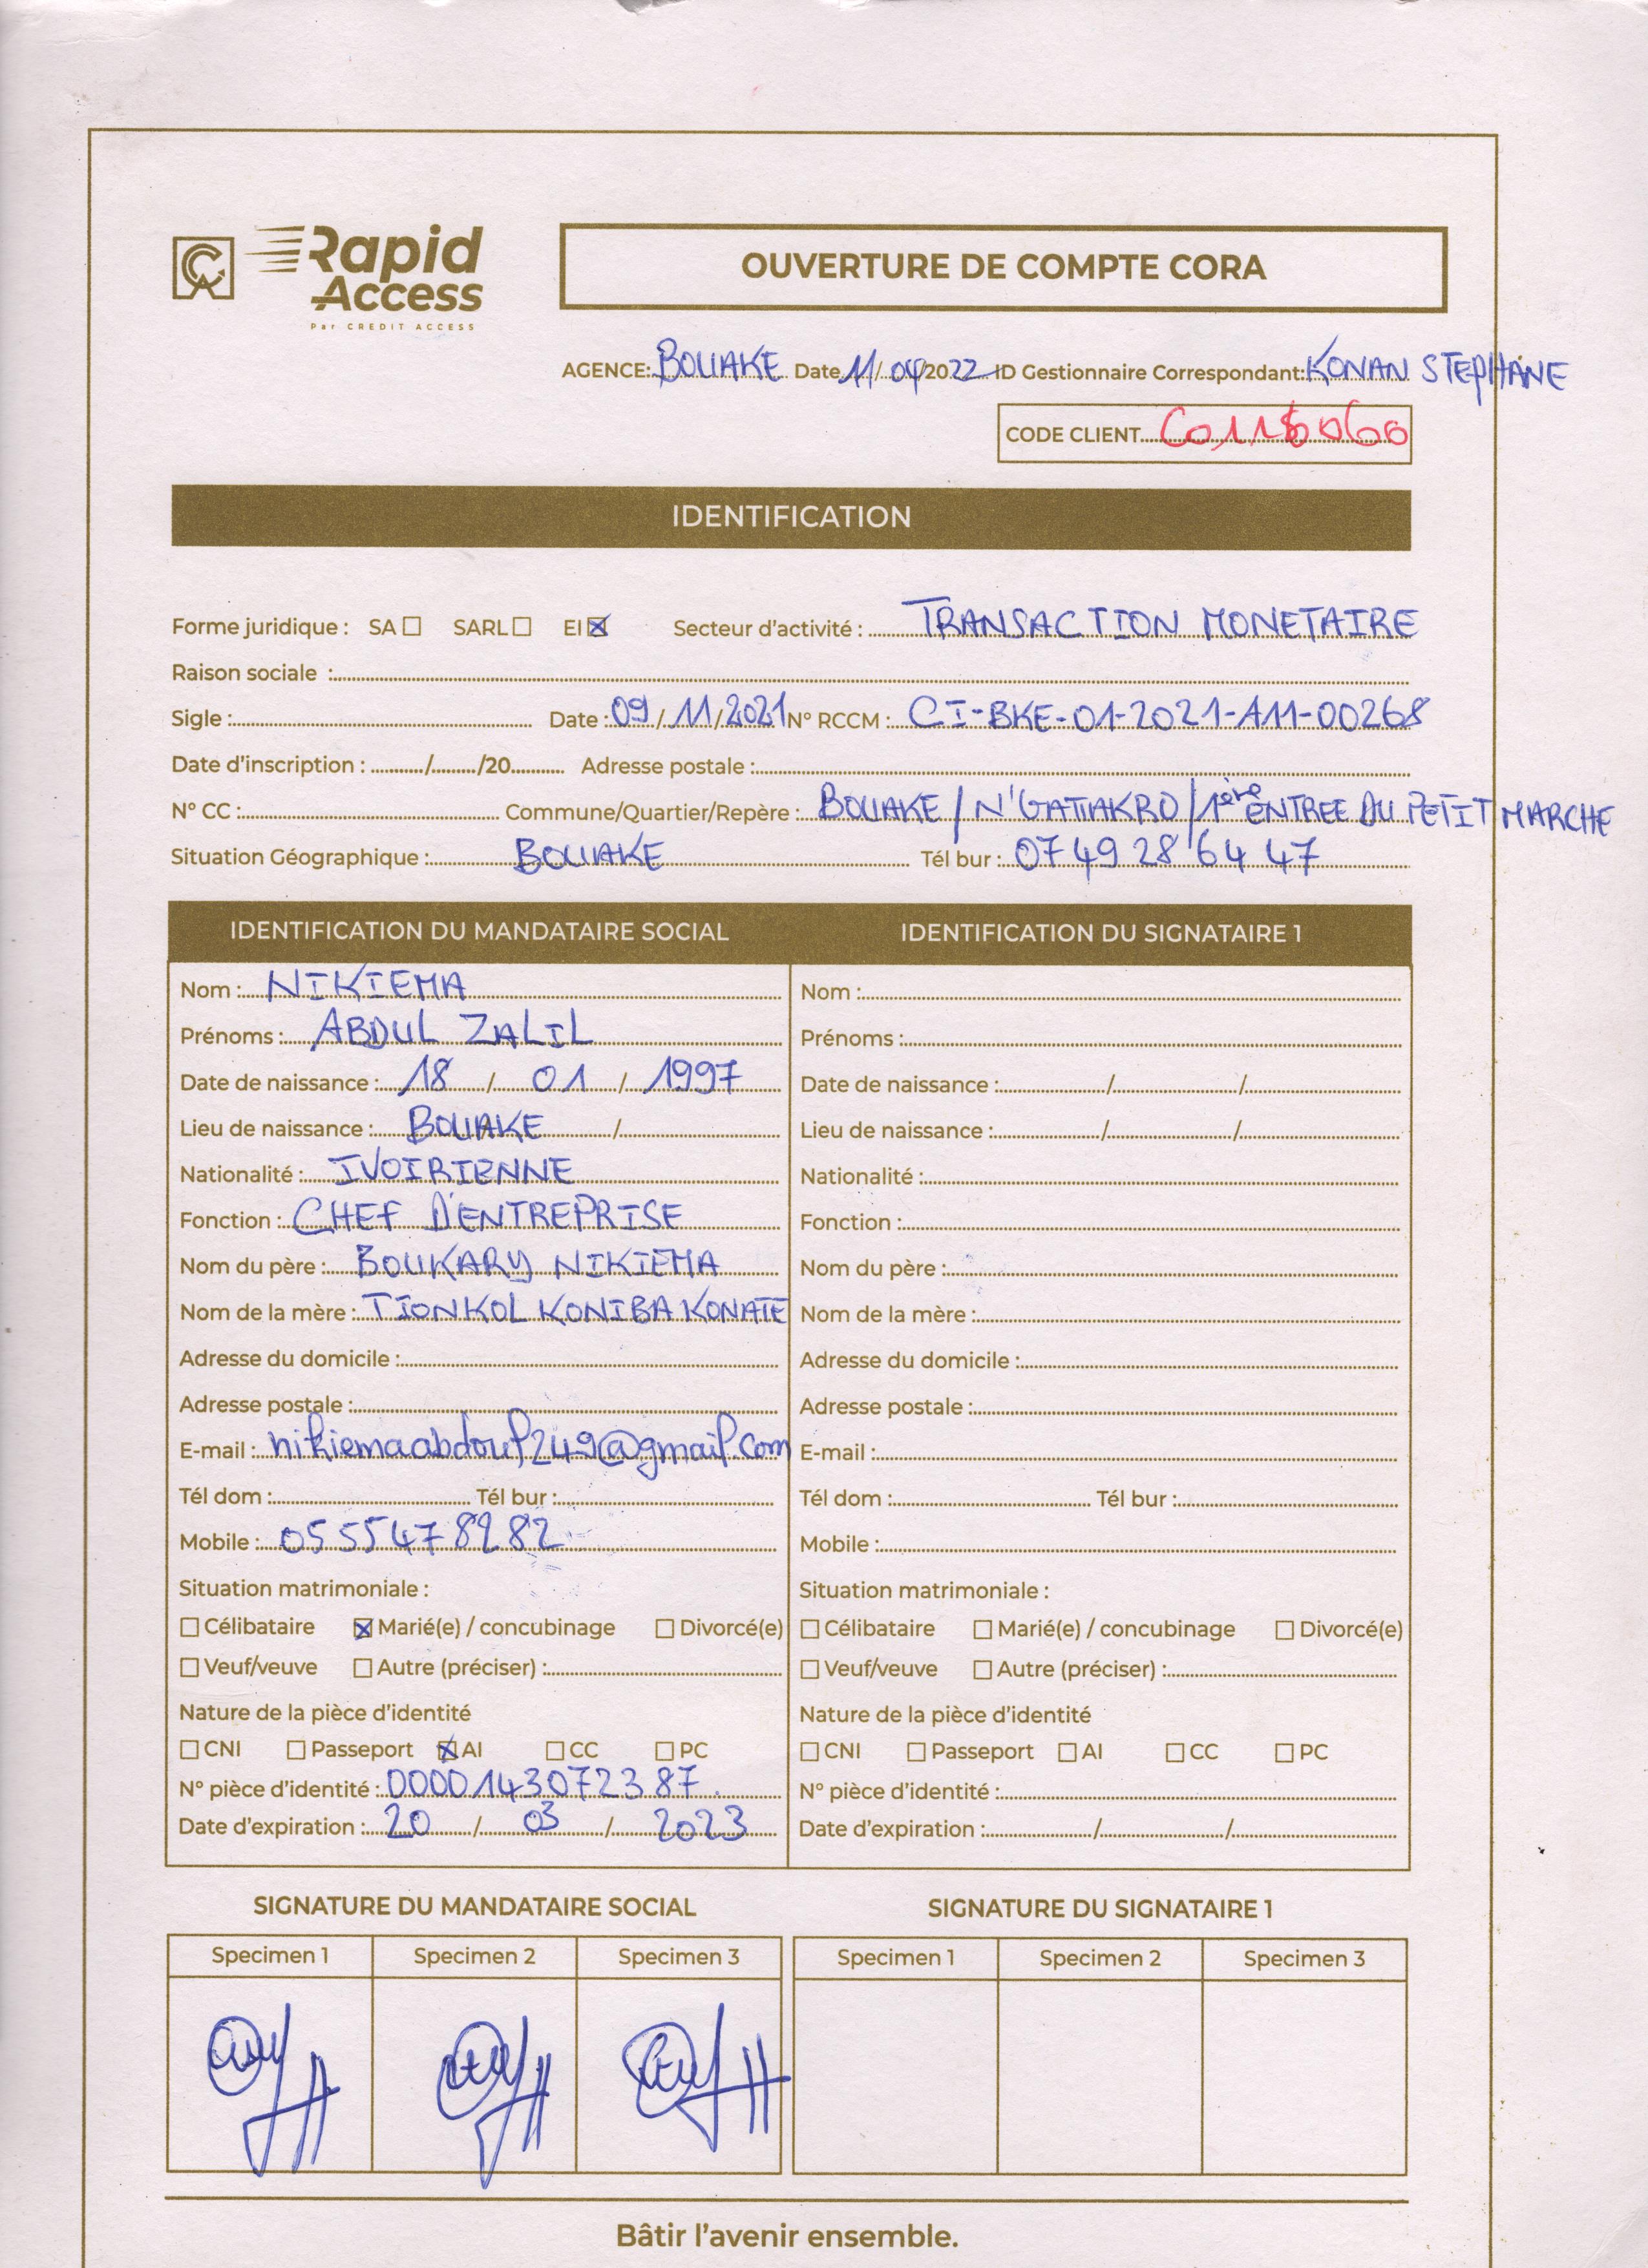 Rapid
Access
Par CREDIT ACCESS
OUVERTURE DE COMPTE CORA
AGENCE: BOUAKE Date 11/04/2022 ID Gestionnaire Correspondant: KONAN STEPHANE
CODE CLIENT
IDENTIFICATION
Forme juridique : SA ☐ SARL ☐ EI ☒ Secteur d'activité : TRANSACTION MONETAIRE
Raison sociale :
Sigle : Date : 09/11/2021 N° RCCM : CI-BKE-01-2021-A11-00268
Date d'inscription : / /20 Adresse postale :
N° CC : Commune/Quartier/Repère : BOUAKE / N'GATTAKRO / 1ère ENTREE DU PETIT MARCHE
Situation Géographique : BOUAKE Tél bur : 07 49 28 64 47
IDENTIFICATION DU MANDATAIRE SOCIAL
Nom : NIKIEMA
Prénoms : ABDUL ZALIL
Date de naissance : 18 / 01 / 1997
Lieu de naissance : BOUAKE /
Nationalité : IVOIRIENNE
Fonction : CHEF D'ENTREPRISE
Nom du père : BOUKARY NIKIEMA
Nom de la mère : TIONKOL KONIBA KONATE
Adresse du domicile :
Adresse postale :
E-mail : nikiemaabdoul249@gmail.com
Tél dom : Tél bur :
Mobile : 0555478282
Situation matrimoniale :
☐ Célibataire ☒ Marié(e) / concubinage ☐ Divorcé(e)
☐ Veuf/veuve ☐ Autre (préciser) :
Nature de la pièce d'identité
☐ CNI ☐ Passeport ☒ AI ☐ CC ☐ PC
N° pièce d'identité : 00001430723 87.
Date d'expiration : 20 / 03 / 2023
IDENTIFICATION DU SIGNATAIRE 1
Nom :
Prénoms :
Date de naissance : / /
Lieu de naissance : / /
Nationalité :
Fonction :
Nom du père :
Nom de la mère :
Adresse du domicile :
Adresse postale :
E-mail :
Tél dom : Tél bur :
Mobile :
Situation matrimoniale :
☐ Célibataire ☐ Marié(e) / concubinage ☐ Divorcé(e)
☐ Veuf/veuve ☐ Autre (préciser) :
Nature de la pièce d'identité
☐ CNI ☐ Passeport ☐ AI ☐ CC ☐ PC
N° pièce d'identité :
Date d'expiration : / /
SIGNATURE DU MANDATAIRE SOCIAL
Specimen 1 Specimen 2 Specimen 3
SIGNATURE DU SIGNATAIRE 1
Specimen 1 Specimen 2 Specimen 3
Bâtir l'avenir ensemble.